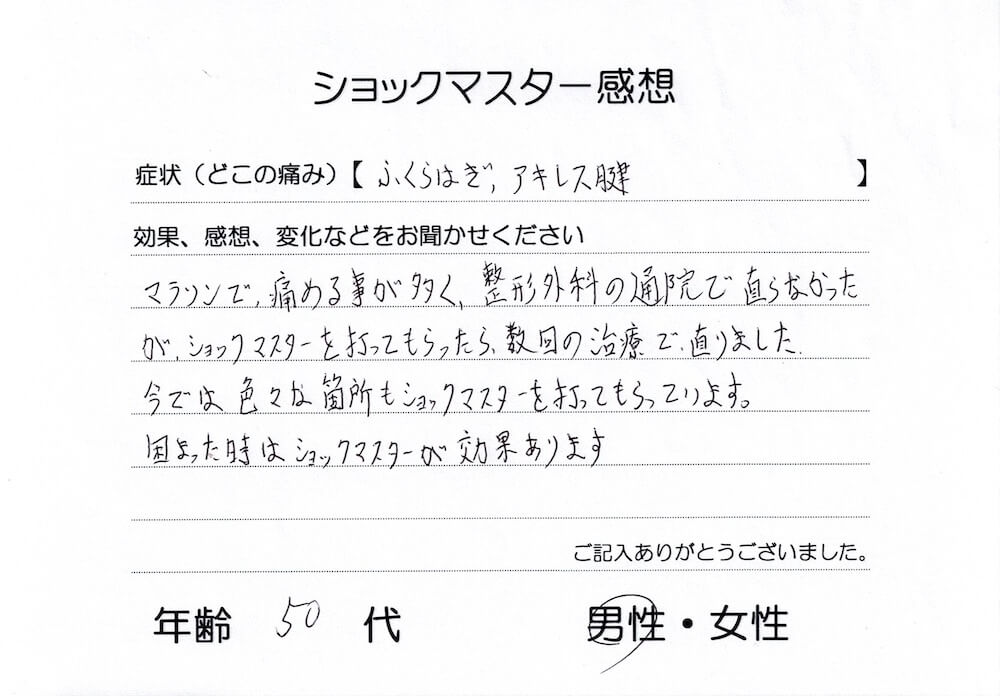 ショックマスター感想
症状（どこの痛み）【 ふくらはぎ, アキレス腱 】
効果、感想、変化などをお聞かせください
マラソンで、痛める事が多く、整形外科の通院で直らなかった
が、ショックマスターを打ってもらったら、数回の治療で、直りました.
今では色々な箇所もショックマスターを打ってもらっています。
困まった時はショックマスターが効果あります
ご記入ありがとうございました。
年齢 50 代 男性・女性